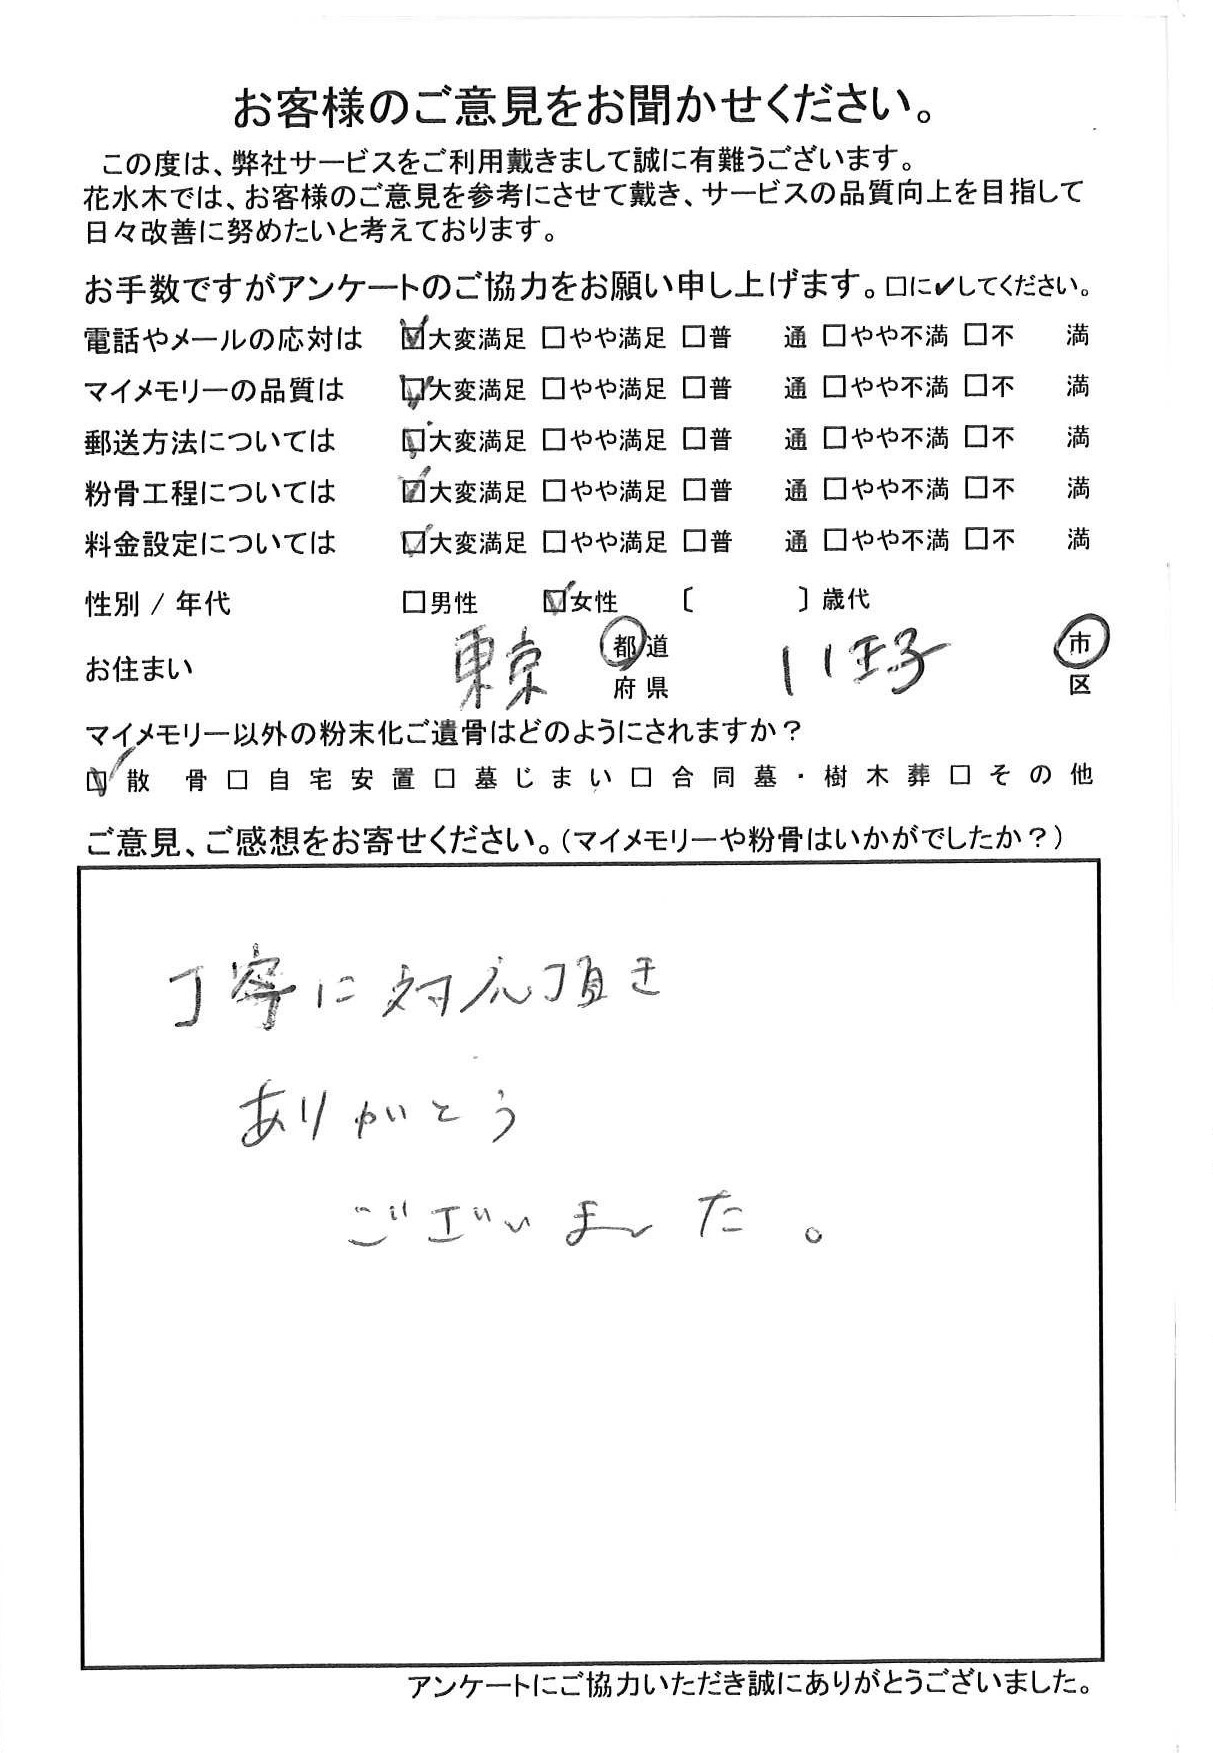 お客様のご意見をお聞かせください。
この度は、弊社サービスをご利用戴きまして誠に有難うございます。
花水木では、お客様のご意見を参考にさせて戴き、サービスの品質向上を目指して
日々改善に努めたいと考えております。
お手数ですがアンケートのご協力をお願い申し上げます。□に✔してください。
電話やメールの応対は ☑大変満足 □やや満足 □普 通 □やや不満 □不 満
マイメモリーの品質は ☑大変満足 □やや満足 □普 通 □やや不満 □不 満
郵送方法については ☑大変満足 □やや満足 □普 通 □やや不満 □不 満
粉骨工程については ☑大変満足 □やや満足 □普 通 □やや不満 □不 満
料金設定については ☑大変満足 □やや満足 □普 通 □やや不満 □不 満
性別 / 年代 □男性 ☑女性 〔 〕歳代
お住まい 東京 都道府県 八王子 市区
マイメモリー以外の粉末化ご遺骨はどのようにされますか？
☑散 骨 □自宅安置 □墓じまい □合同墓・樹木葬 □その他
ご意見、ご感想をお寄せください。（マイメモリーや粉骨はいかがでしたか？）
丁寧に対応頂き
ありがとう
ございました。
アンケートにご協力いただき誠にありがとうございました。